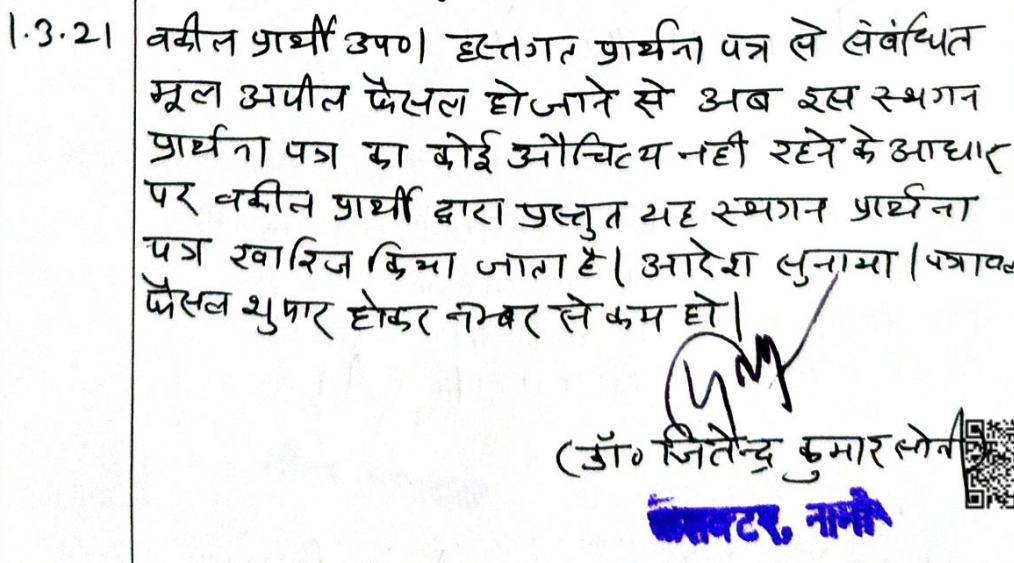 1.3.21 वकील प्रार्थी उप०। हस्तगत प्रार्थना पत्र से संबंधित
मूल अपील फैसल हो जाने से अब इस स्थगन
प्रार्थना पत्र का कोई औचित्य नही रहने के आधार
पर वकील प्रार्थी द्वारा प्रस्तुत यह स्थगन प्रार्थना
पत्र खारिज किया जाता है। आदेश सुनाया।
फैसल शुमार होकर नम्बर से कम हो।
(डॉ० जितेन्द्र कुमार सोनी